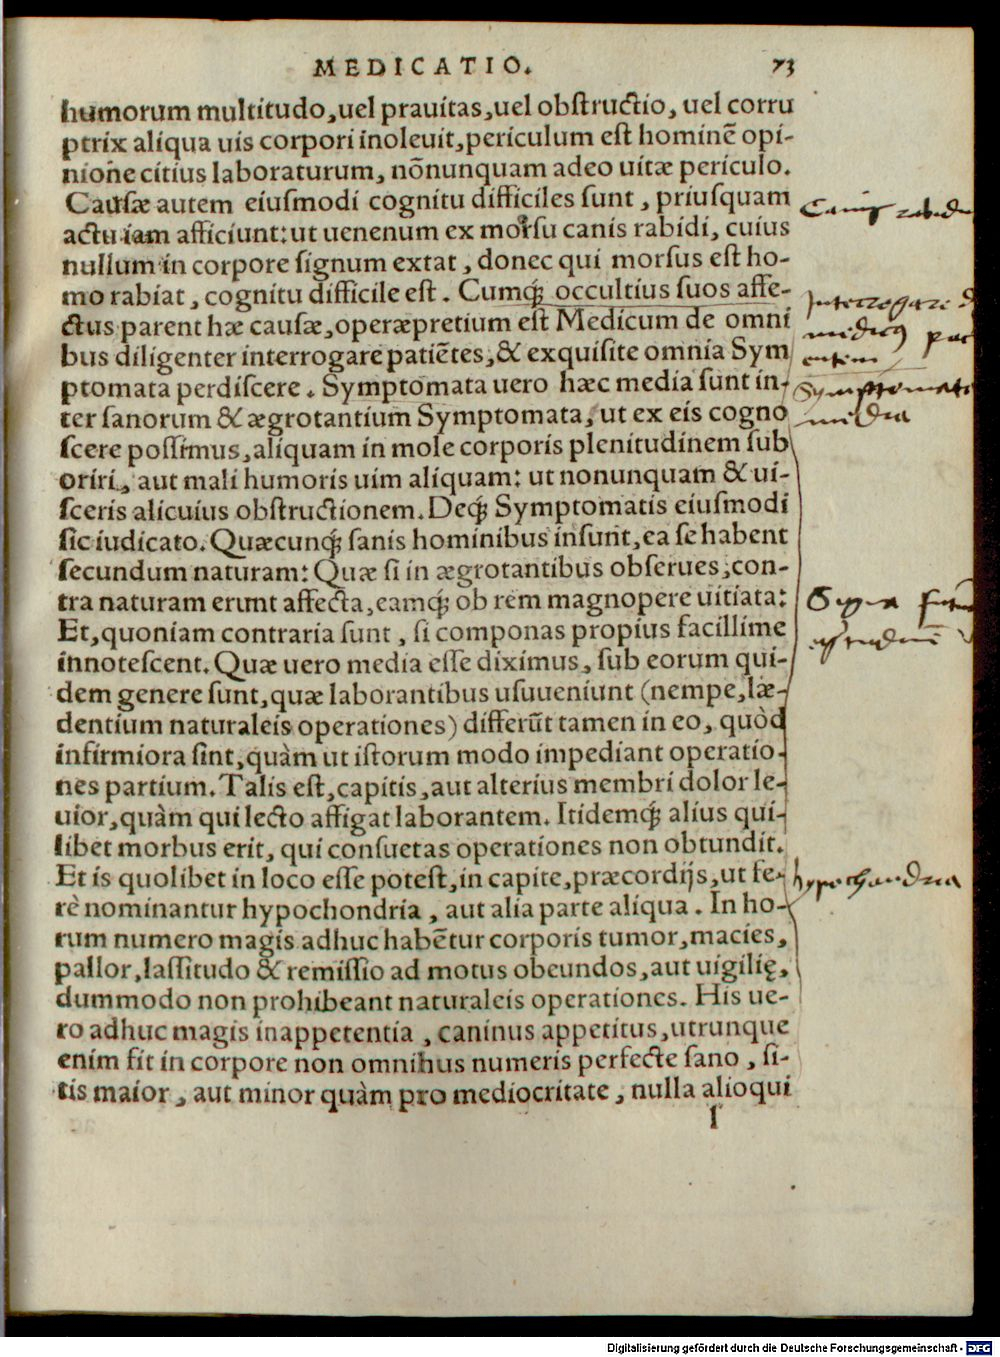 MEDICATIO. 73
humorum multitudo, uel prauitas, uel obstructio, uel corru
ptrix aliqua uis corpori inoleuit, periculum est hominē opi-
nione citius laboraturum, nōnunquam adeo uitæ periculo.
Causæ autem eiusmodi cognitu difficiles sunt, priusquam
actu iam afficiunt: ut uenenum ex morsu canis rabidi, cuius
Canis rabidi
nullum in corpore signum extat, donec qui morsus est ho-
mo rabiat, cognitu difficile est. Cumq́; occultius suos affe-
Interrogare
ctus parent hæ causæ, operæpretium est Medicum de omni
medicus
bus diligenter interrogare patiētes, & exquisite omnia Sym
entem
ptomata perdiscere. Symptomata uero hæc media sunt in-
Symptomata
ter sanorum & ægrotantium Symptomata, ut ex eis cogno
media
scere possimus, aliquam in mole corporis plenitudinem sub
oriri, aut mali humoris uim aliquam: ut nonunquam & ui-
sceris alicuius obstructionem. Deq́; Symptomatis eiusmodi
sic iudicato. Quæcunq́; sanis hominibus insunt, ea se habent
secundum naturam: Quæ si in ægrotantibus obserues, con-
tra naturam erunt affecta, eamq́; ob rem magnopere uitiata:
Signa
Et, quoniam contraria sunt, si componas propius facillime
innotescent. Quæ uero media esse diximus, sub eorum qui-
dem genere sunt, quæ laborantibus usuueniunt (nempe, læ-
dentium naturaleis operationes) differūt tamen in eo, quòd
infirmiora sint, quàm ut istorum modo impediant operatio-
nes partium. Talis est, capitis, aut alterius membri dolor le-
uior, quàm qui lecto affigat laborantem. Itidemq́; alius qui-
libet morbus erit, qui consuetas operationes non obtundit.
Et is quolibet in loco esse potest, in capite, præcordijs, ut fe-
hypochandria
rè nominantur hypochondria, aut alia parte aliqua. In ho-
rum numero magis adhuc habētur corporis tumor, macies,
pallor, lassitudo & remissio ad motus obeundos, aut uigilię,
dummodo non prohibeant naturaleis operationes. His ue-
ro adhuc magis inappetentia, caninus appetitus, utrunque
enim fit in corpore non omnibus numeris perfecte sano, si-
tis maior, aut minor quàm pro mediocritate, nulla alioqui
I
Digitalisierung gefördert durch die Deutsche Forschungsgemeinschaft - DFG